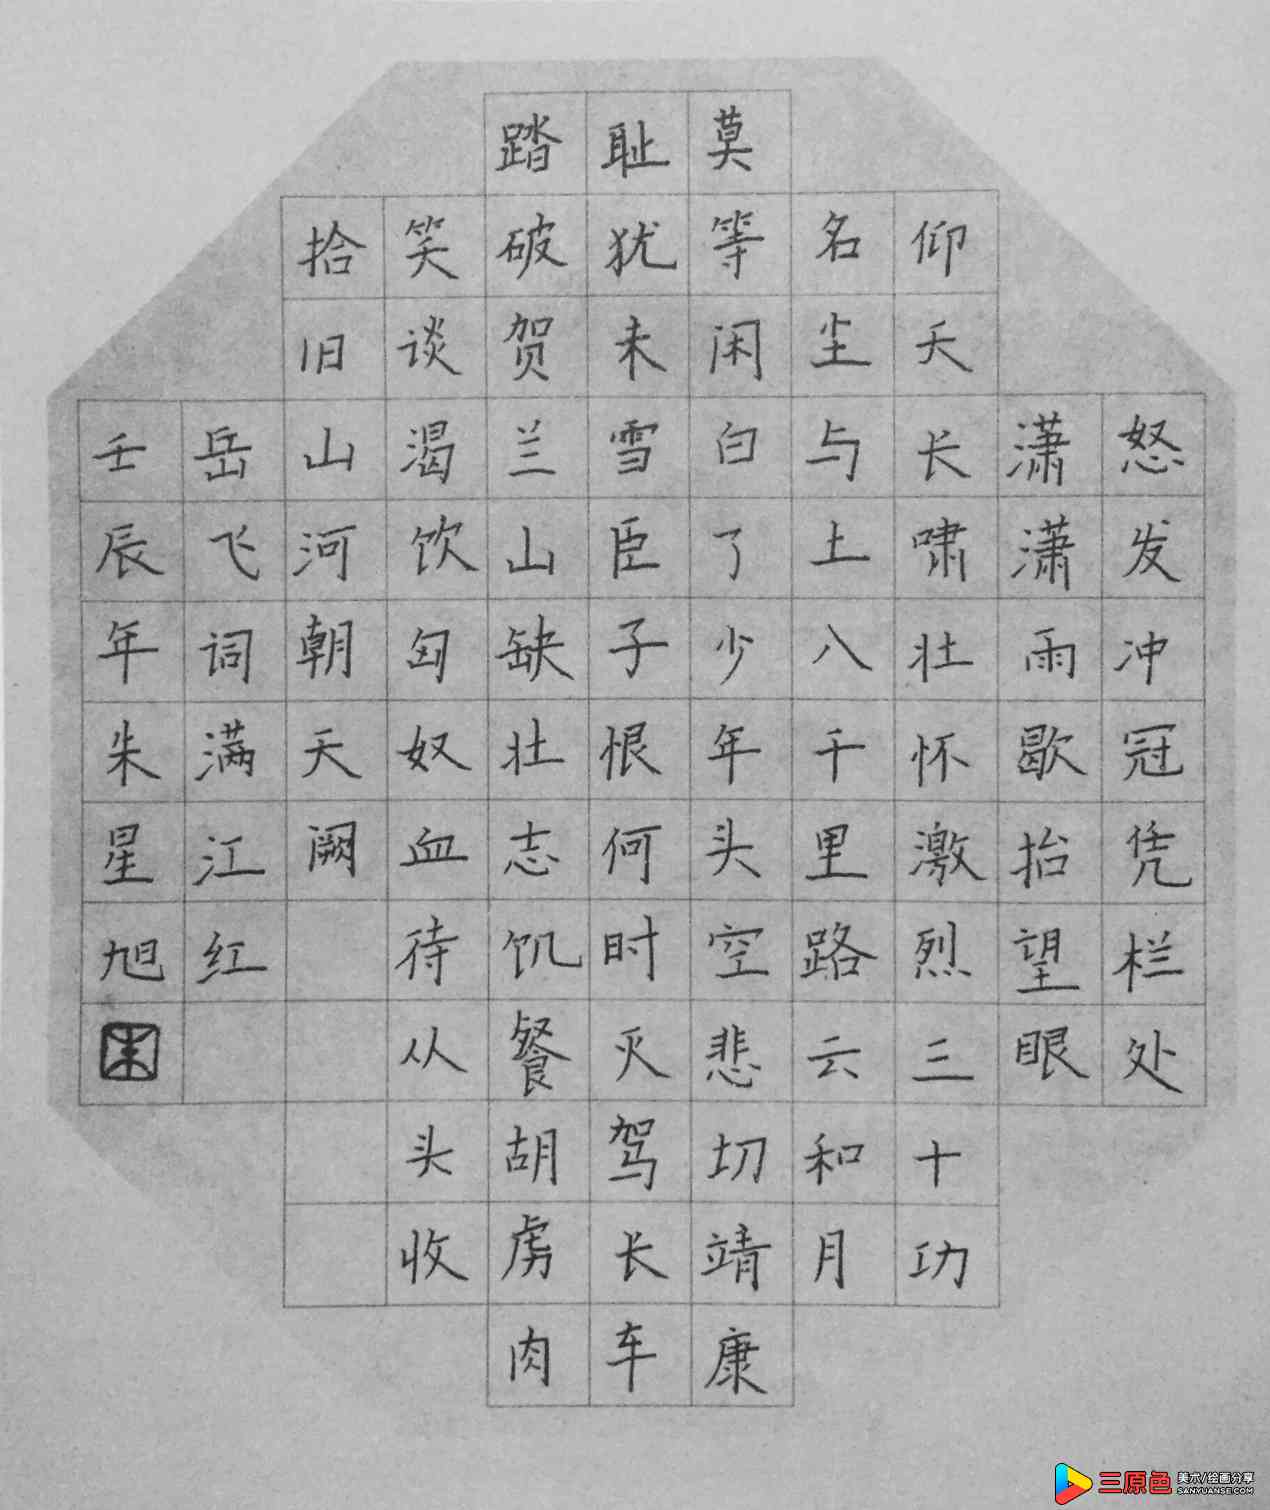 怒发冲冠凭栏处
潇潇雨歇抬望眼
仰天长啸壮怀激烈三十功
名尘与土八千里路云和月
莫等闲白了少年头空悲切靖康
耻犹未雪臣子恨何时灭驾长车
踏破贺兰山缺壮志饥餐胡虏肉
笑谈渴饮匈奴血待从头收
拾旧山河朝天阙
岳飞词满江红
壬辰年朱星旭
朱
三原色
美术/绘画分享
SANYUANSE.COM